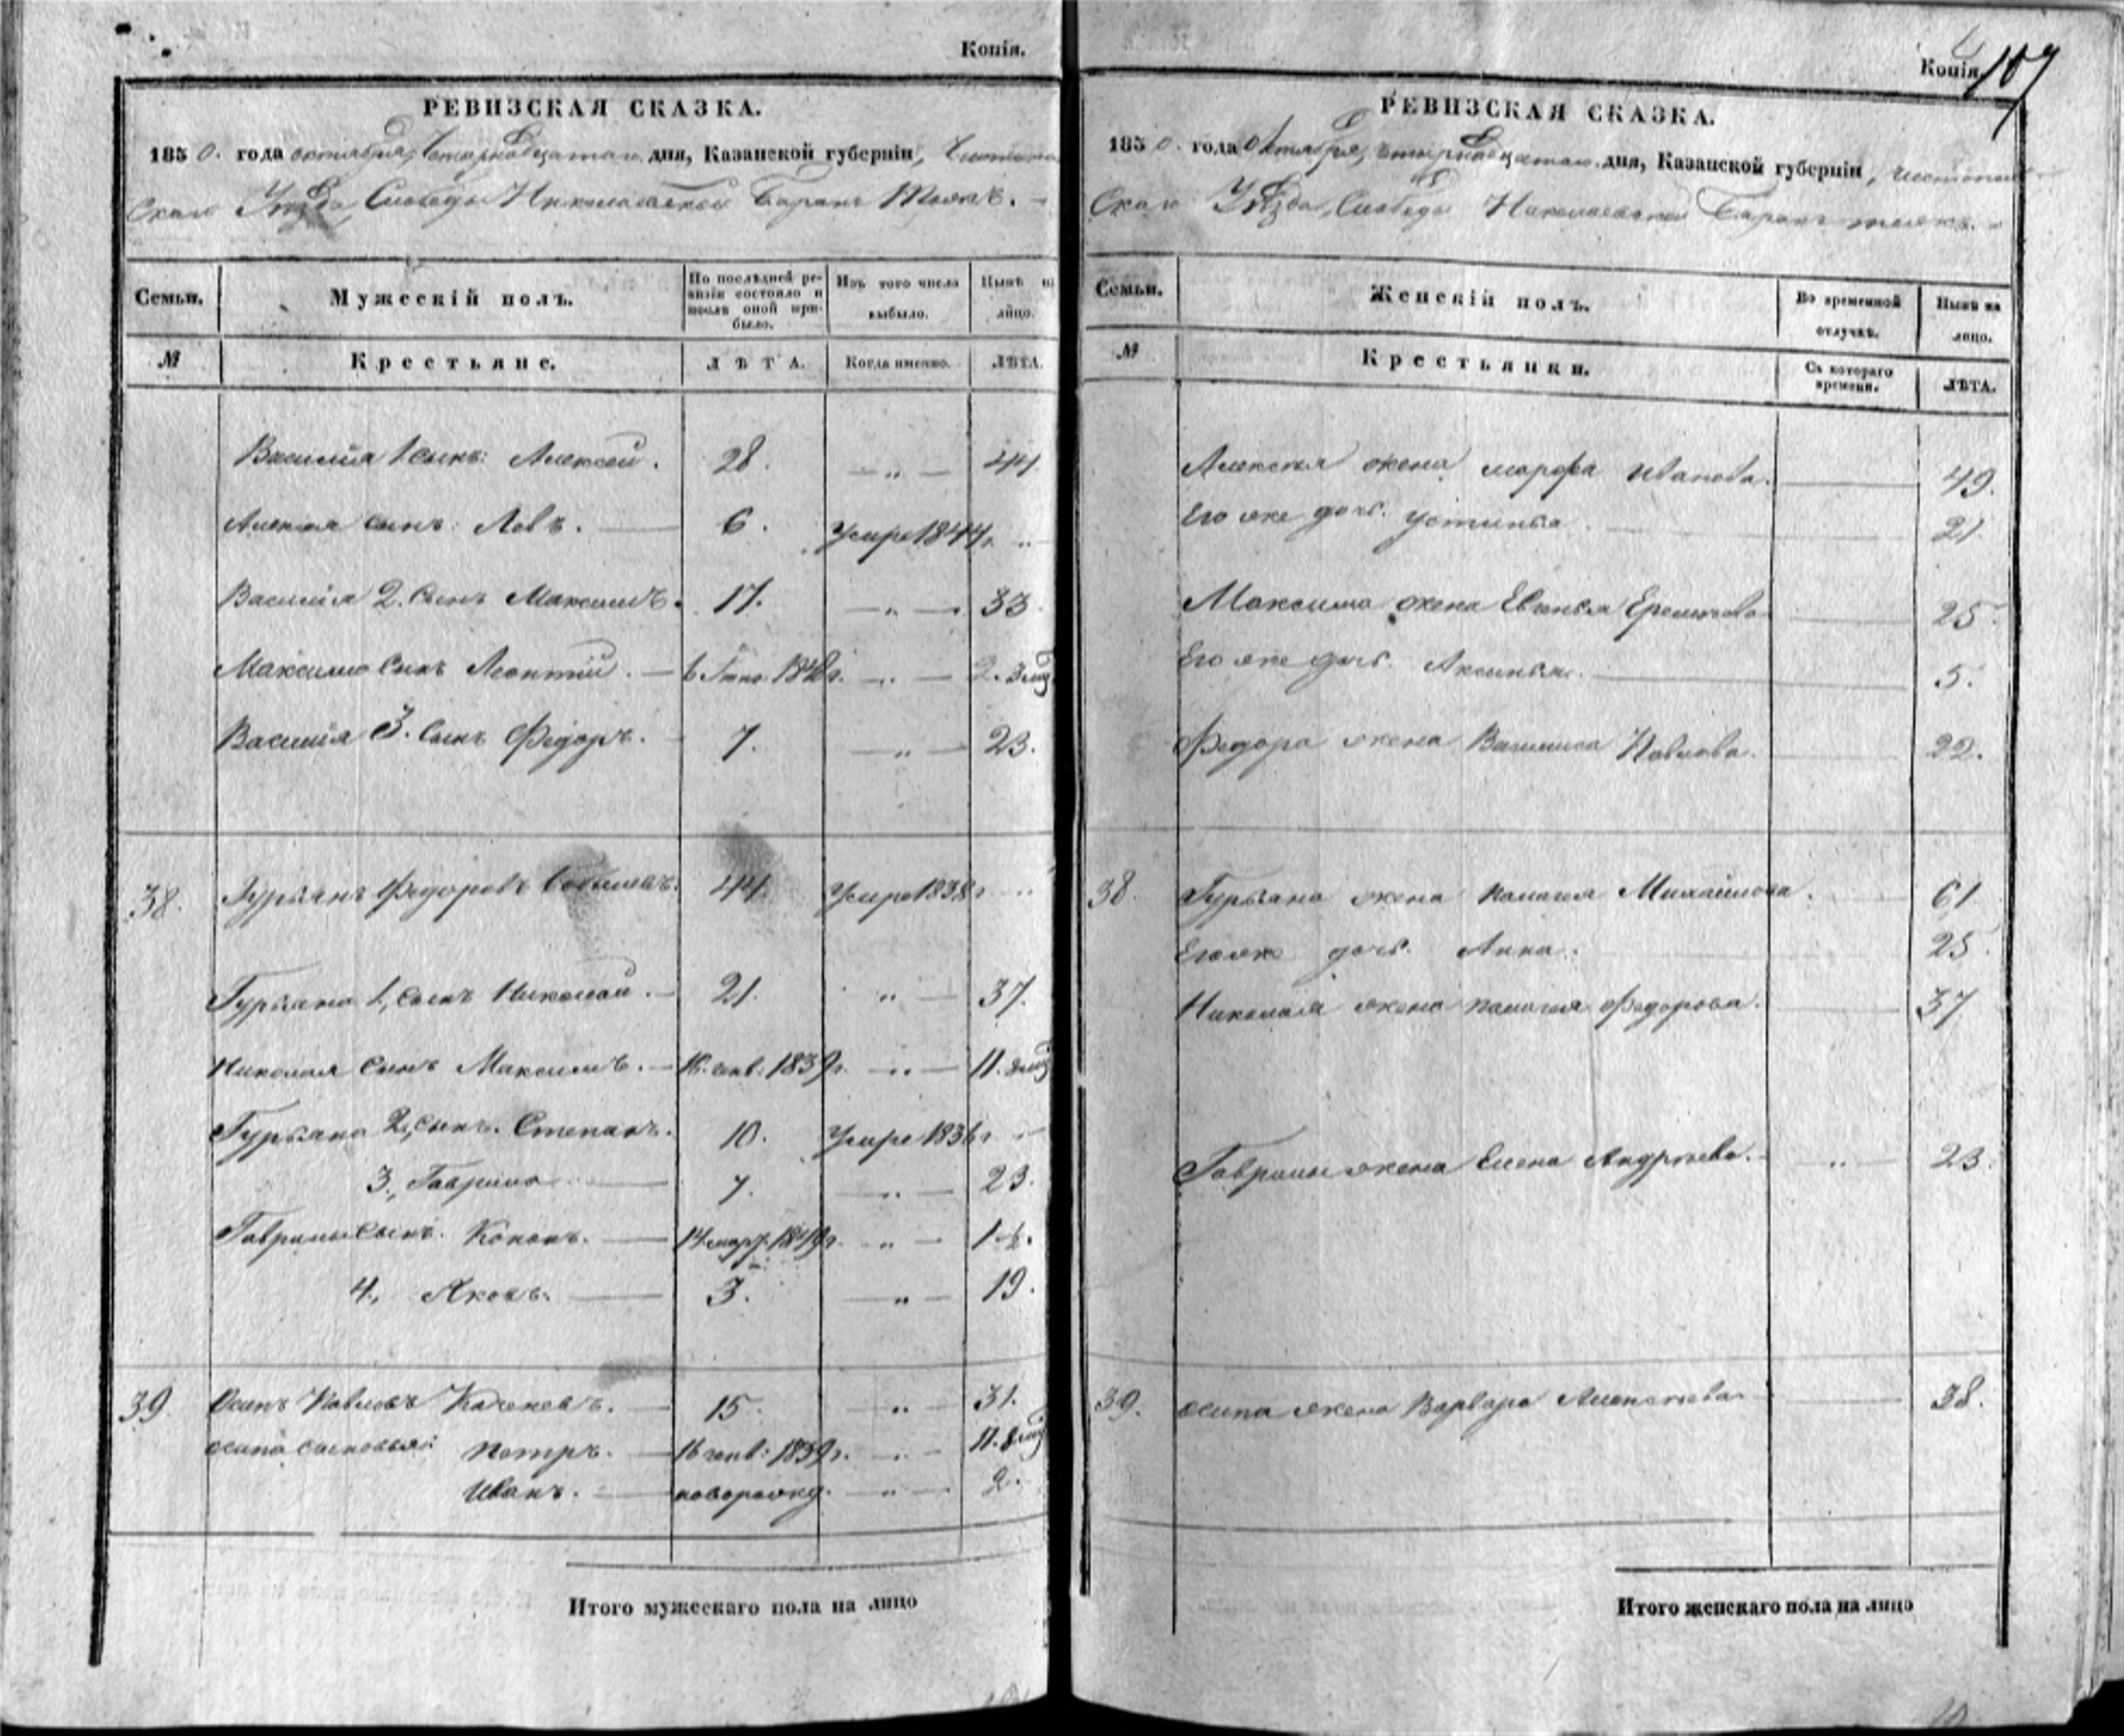 Копія.
РЕВИЗСКАЯ СКАЗКА.
1850. года октября четырнадцатаго дня, Казанской губерніи, Чистополь
скаго Уѣзда, Слободы Николаевской Баранъ тожъ.
Семьи.
Мужескій полъ.
По послѣдней ревизіи состояло и послѣ оной прибыло.
Изъ того числа выбыло.
Нынѣ на лицо.
№
Крестьяне.
ЛѢТА.
Когда именно.
ЛѢТА.
Василія 1 сынъ: Алексей. 28. — „ — 44
Алексея сынъ: Левъ. — 6. Умре 1844 г. „
Василія 2. сынъ Максимъ. 17. — „ — 33
Максима сынъ Леонтій. — 1848 г. — „ — 2. 3 мц
Василія 3. сынъ Федоръ. 7. — „ — 23.
38. Гурьянъ Федоровъ 44. Умре 1838 г „
Гурьяна 1, сынъ Николай. — 21. „ — 37.
Николая сынъ Максимъ. — 16. генв: 1839 г. — „ — 11. 8 мц
Гурьяна 2, сынъ. Степанъ. 10. Умре 1836 г „
3., Гаврила — 7. — „ — 23.
Гаврилы сынъ. Кононъ. — 14 март. 1849 г. „ — 1 ½.
4., Яковъ. — 3. — „ — 19.
39. Осипъ Павловъ — 15. „ — 31.
Осипа сыновья: Петръ. — 16 генв: 1839 г. — „ — 11. 8 мц
Иванъ. — новорожд. — „ — 2.
Итого мужескаго пола на лицо
Копія
107
РЕВИЗСКАЯ СКАЗКА.
1850. года Октября, четырнадцатаго дня, Казанской губерніи, Чистополь
скаго Уѣзда, Слободы Николаевской Баранъ тожъ.
Семьи.
Женскій полъ.
Во временной отлучкѣ.
Нынѣ на лицо.
№
Крестьянки.
Съ котораго времени.
ЛѢТА.
Алексея жена марфа Иванова. — 49.
Его же дочь. Устинья — 21
Максима жена Евгенья — 25.
Его же дочь. Аксинья. — 5.
Федора жена Василиса Павлова. — 22.
38. Гурьяна жена Палагея Михайлова. — 61
Его же дочь. Анна. 25.
Николая жена Палагея Федорова. — 37
Гаврилы жена Елена Андреева. — „ — 23.
39. Осипа жена Варвара — 38.
Итого женскаго пола на лицо